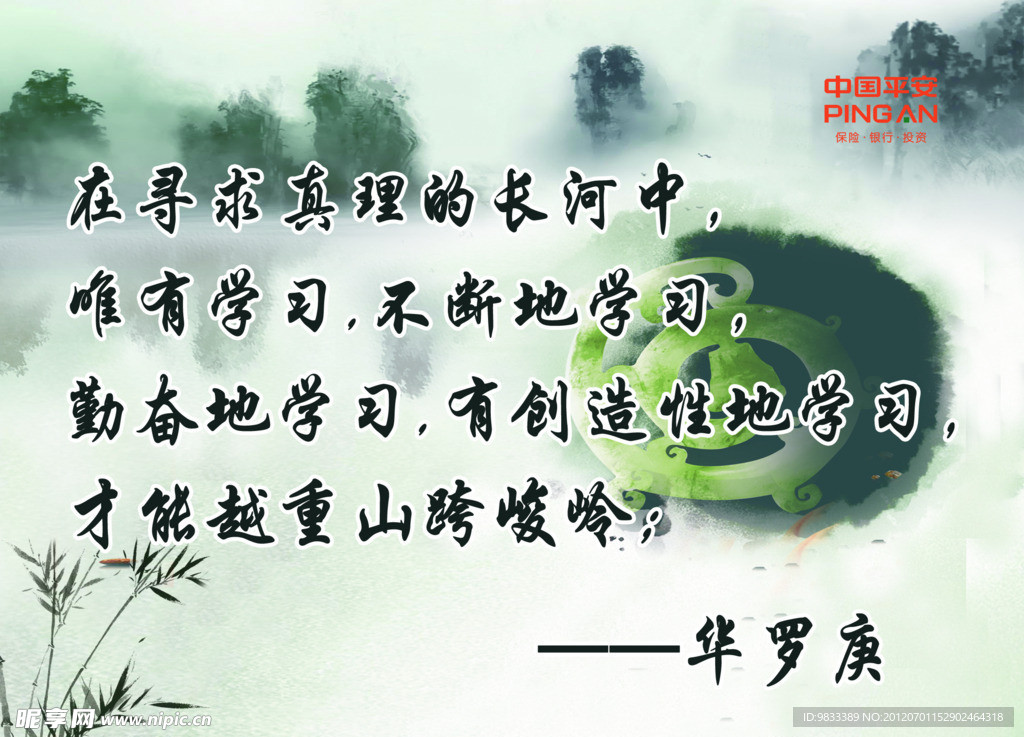 中国平安
PING AN
保险·银行·投资
在寻求真理的长河中，
唯有学习，不断地学习，
勤奋地学习，有创造性地学习，
才能越重山跨峻岭；
——华罗庚
昵享网 www.nipic.cn
ID:9833389 NO:20120701152902464318